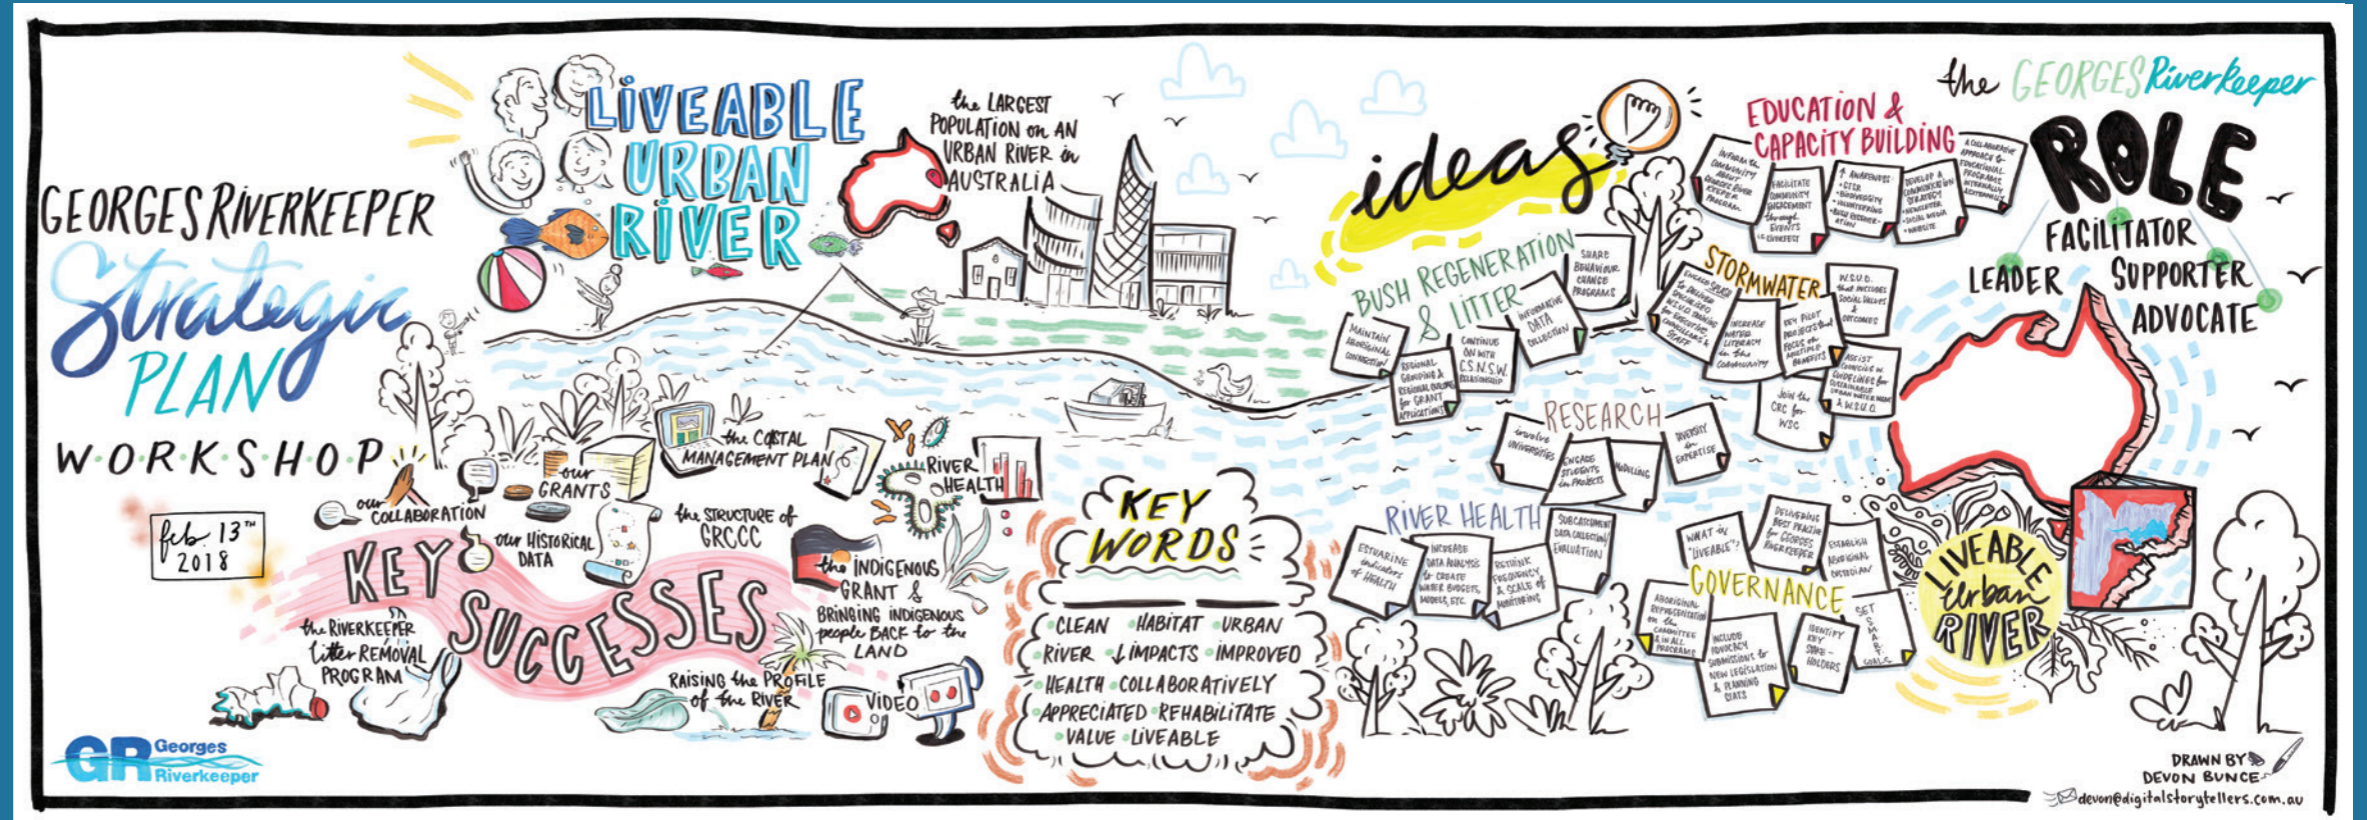 GEORGES RIVERKEEPER
Strategic
PLAN
WORKSHOP
feb 13TH
2018
LIVEABLE
URBAN
RIVER
the LARGEST
POPULATION on AN
URBAN RIVER in
AUSTRALIA
our
COLLABORATION
our
GRANTS
the COSTAL
MANAGEMENT PLAN
RIVER
HEALTH
our HISTORICAL
DATA
the STRUCTURE of
GRCCC
the INDIGENOUS
GRANT &
BRINGING INDIGENOUS
people BACK to the
LAND
KEY
SUCCESSES
the RIVERKEEPER
litter REMOVAL
PROGRAM
RAISING the PROFILE
of the RIVER
VIDEO
GR Georges
Riverkeeper
KEY
WORDS
CLEAN • HABITAT • URBAN
• RIVER • ↓ IMPACTS • IMPROVED
• HEALTH • COLLABORATIVELY
• APPRECIATED • REHABILITATE
• VALUE • LIVEABLE
ideas
BUSH REGENERATION
& LITTER
MAINTAIN
ABORIGINAL
CONNECTION
REGIONAL
for GRANT
APPLICATIONS
CONTINUE
ON WITH
C.S.N.S.W.
RELATIONSHIP
INFORMATIVE
DATA
COLLECTION
SHARE
BEHAVIOUR
CHANGE
PROGRAMS
EDUCATION &
CAPACITY BUILDING
INFORM the
COMMUNITY
ABOUT
GEORGES RIVER
KEEPER
PROGRAM
FACILITATE
COMMUNITY
ENGAGEMENT
through
EVENTS
↑ AWARENESS:
• BIODIVERSITY
• VOLUNTEERING
DEVELOP A
COMMUNICATION
STRATEGY
• NEWSLETTER
• SOCIAL MEDIA
• WEBSITE
A COLLABORATIVE
APPROACH to
EDUCATIONAL
PROGRAMS
INTERNALLY
& EXTERNALLY
STORMWATER
W.S.U.D.
that INCLUDES
SOCIAL VALUES
&
OUTCOMES
INCREASE
WATER
LITERACY
in the
COMMUNITY
KEY PILOT
PROJECTS that
FOCUS on
MULTIPLE
BENEFITS
ASSIST
COUNCILS w.
GUIDELINES for
SUSTAINABLE
& W.S.U.D.
JOIN the
CRC for
WSC
RESEARCH
involve
UNIVERSITIES
ENGAGE
STUDENTS
in PROJECTS
MODELLING
DIVERSITY
in
EXPERTISE
RIVER HEALTH
ESTUARINE
indicators
of HEALTH
INCREASE
DATA ANALYSIS
to CREATE
WATER BUDGETS,
MODELS, ETC.
RETHINK
FREQUENCY
& SCALE of
MONITORING
SUBCATCHMENT
DATA COLLECTION/
EVALUATION
GOVERNANCE
WHAT is
"LIVEABLE"?
DELIVERING
BEST PRACTISE
for GEORGES
RIVERKEEPER
ESTABLISH
ABORIGINAL
CUSTODIAN
ABORIGINAL
REPRESENTATION
on the
COMMITTEE
& IN ALL
PROGRAMS
INCLUDE
ADVOCACY
SUBMISSIONS to
NEW LEGISLATION
& PLANNING
IDENTIFY
KEY
STAKE-
HOLDERS
SET
SMART
GOALS
the GEORGES Riverkeeper
ROLE
FACILITATOR
LEADER
SUPPORTER
ADVOCATE
LIVEABLE
Urban
RIVER
DRAWN BY
DEVON BUNCE
devon@digitalstorytellers.com.au